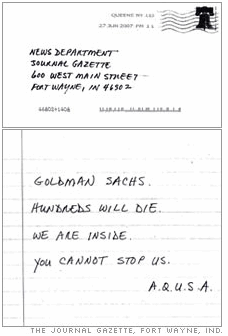 QUEENS NY 110
27 JUN 2007 PM
NEWS DEPARTMENT
JOURNAL GAZETTE
600 WEST MAIN STREET
FORT WAYNE, IN 46802
46802+1408
GOLDMAN SACHS.
HUNDREDS WILL DIE.
WE ARE INSIDE.
YOU CANNOT STOP US.
A.Q.U.S.A.
THE JOURNAL GAZETTE, FORT WAYNE, IND.